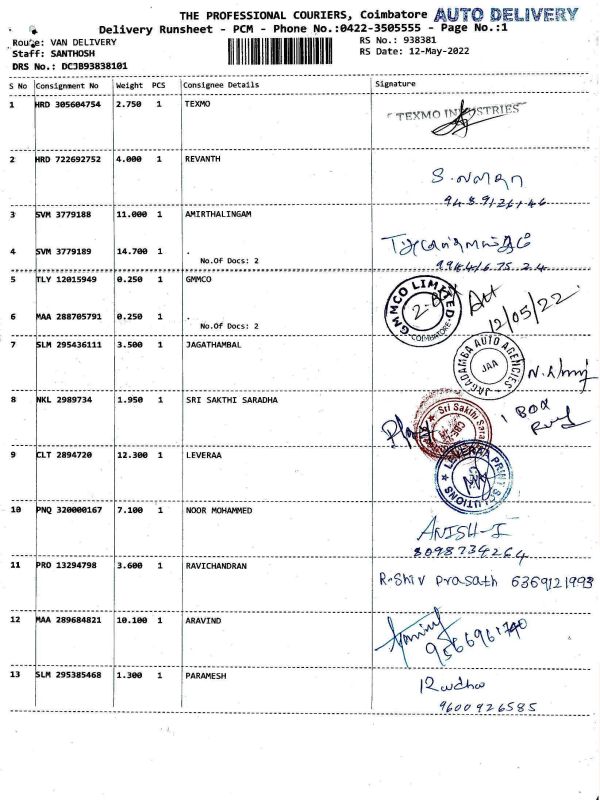 THE PROFESSIONAL COURIERS, Coimbatore AUTO DELIVERY
Delivery Runsheet - PCM - Phone No.:0422-3505555 - Page No.:1
Route: VAN DELIVERY RS No.: 938381
Staff: SANTHOSH RS Date: 12-May-2022
DRS No.: DCJB93838101
S No Consignment No Weight PCS Consignee Details Signature
1 HRD 305604754 2.750 1 TEXMO
TEXMO INDUSTRIES
2 HRD 722692752 4.000 1 REVANTH
3 SVM 3779188 11.000 1 AMIRTHALINGAM
4 SVM 3779189 14.700 1 .
No.Of Docs: 2
5 TLY 12015949 0.250 1 GMMCO
GMMCO LIMITED COIMBATORE
12/05/22
6 MAA 288705791 0.250 1 .
No.Of Docs: 2
7 SLM 295436111 3.500 1 JAGATHAMBAL
JAGADAMBA AUTO AGENCIES JAA
8 NKL 2989734 1.950 1 SRI SAKTHI SARADHA
Sri Sakthi Sara
1 BOX
9 CLT 2894720 12.300 1 LEVERAA
LEVERAA PRINT SOLUTIONS
10 PNQ 320000167 7.100 1 NOOR MOHAMMED
ANISH-I
8098734264
11 PRO 13294798 3.600 1 RAVICHANDRAN
R.Shiv prasath 6369121993
12 MAA 289684821 10.100 1 ARAVIND
13 SLM 295385468 1.300 1 PARAMESH
9600926585